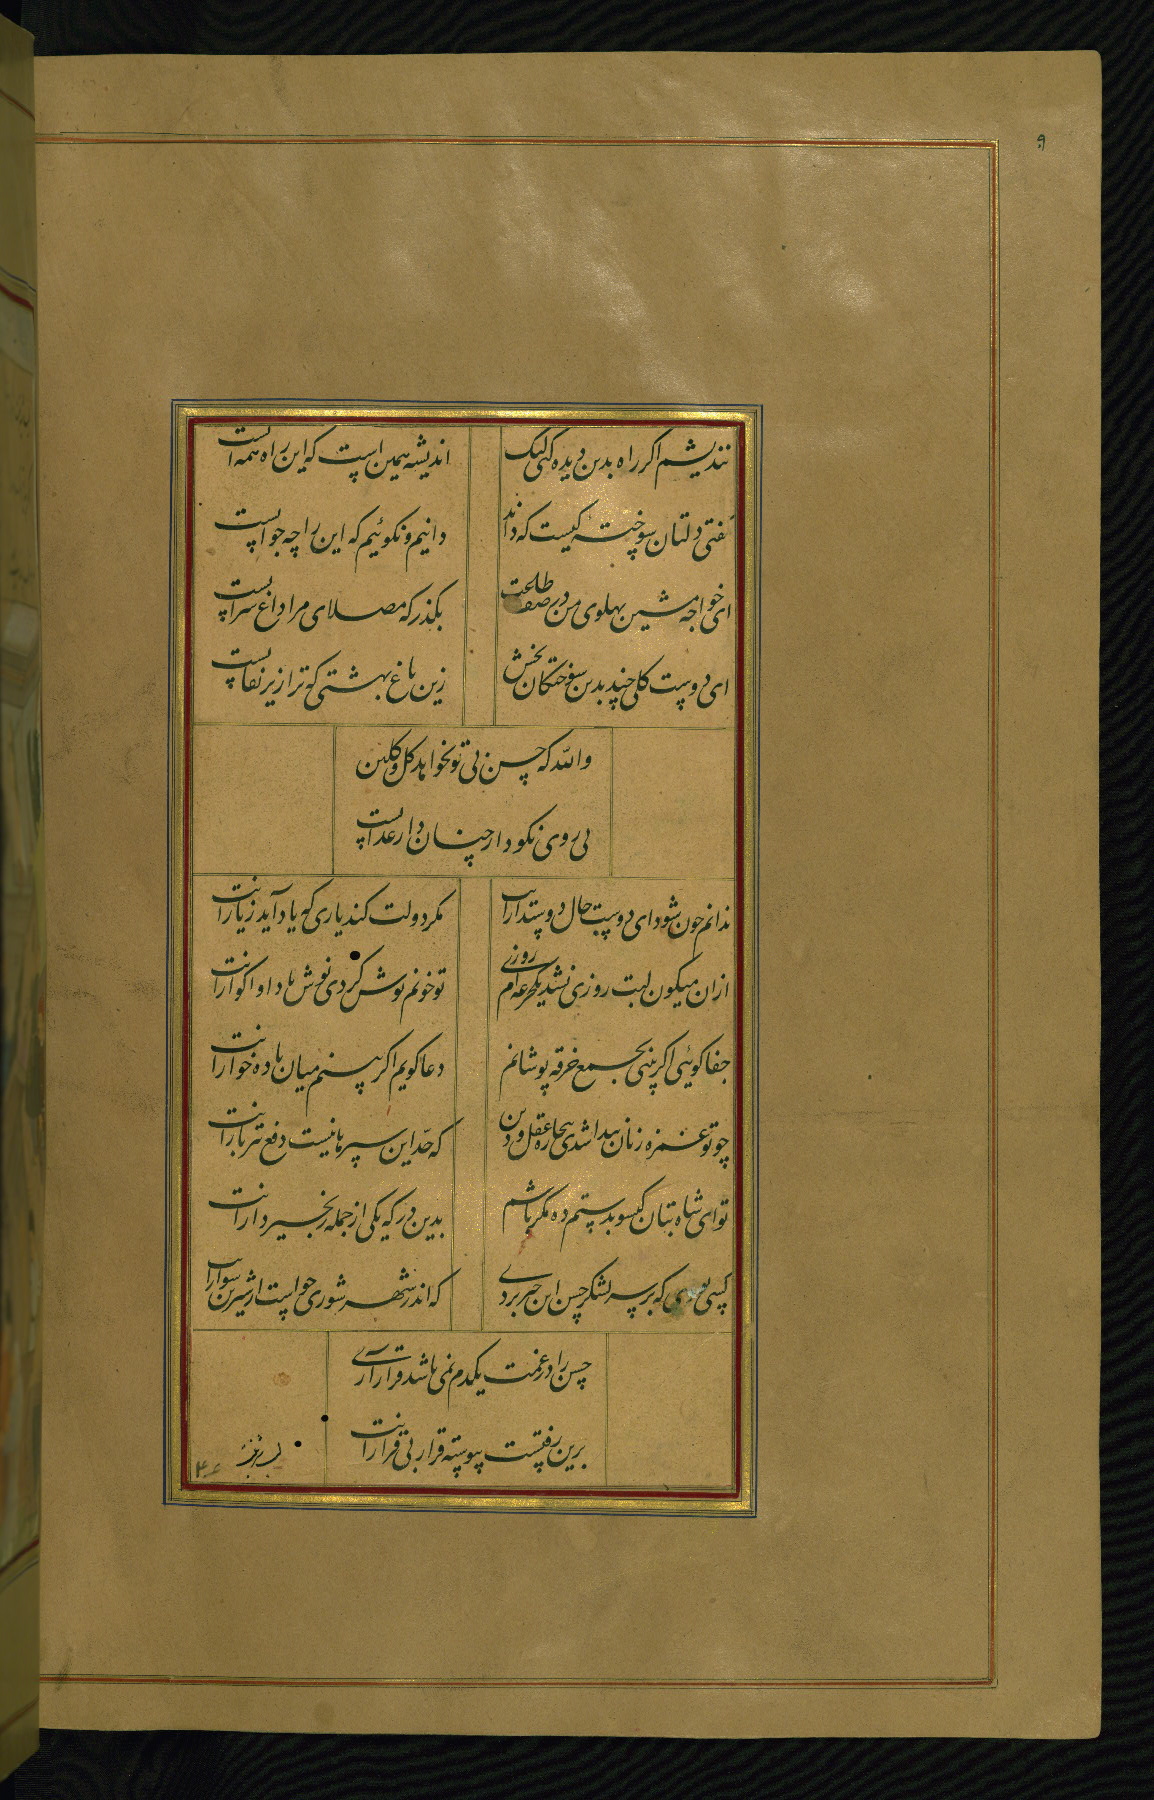 ۹
نندیشم اگر راه بدین دیده کنی لیک
اندیشه همین است که این راه همه ابست
گفتی دلتان سوخته کیست که داند
دانیم و نکوئیم که این را چه جوابست
ای خواجه مشین پهلوی من در صف طاعت
بکذر که مصلای مرا داغ شرابست
ای دوست کلی چند بدین سوختکان بخش
زین باغ بهشتی که ترا زیر نقابست
والله که حسن بی تو نخواهد کل و کلبن
بی روی نکو دار چنان دار عذابست
ندانم چون شود ای دوست حال دوستدارانت
مکر دولت کند یاری که یاد آید ز یارانت
ازان میکون لبت روزی نشد یکجرعه ام روزی
تو خونم نوش کردی نوش باد او اکوارانت
جفا کوئی اکر بینی بجمع خرقه پوشانم
دعا کویم اکر بینم میان باده خوارانت
چو تو غمزه زنان پیدا شدی بیچاره عقل و دین
که حد این سپرها نیست دفع تیر بارانت
تو ای شاه بتان کیسو بدستم ده مکر باشم
بدین درکه یکی از جمله زنجیر دارانت
کسی که بر سر لشکر حسن این خبر بردی
که اندر شهر شوری خواست از شیرین سوارانت
حسن را در غمت یکدم نمی باشد قرار آری
برین رفتست پیوسته قرار بی قرارانت